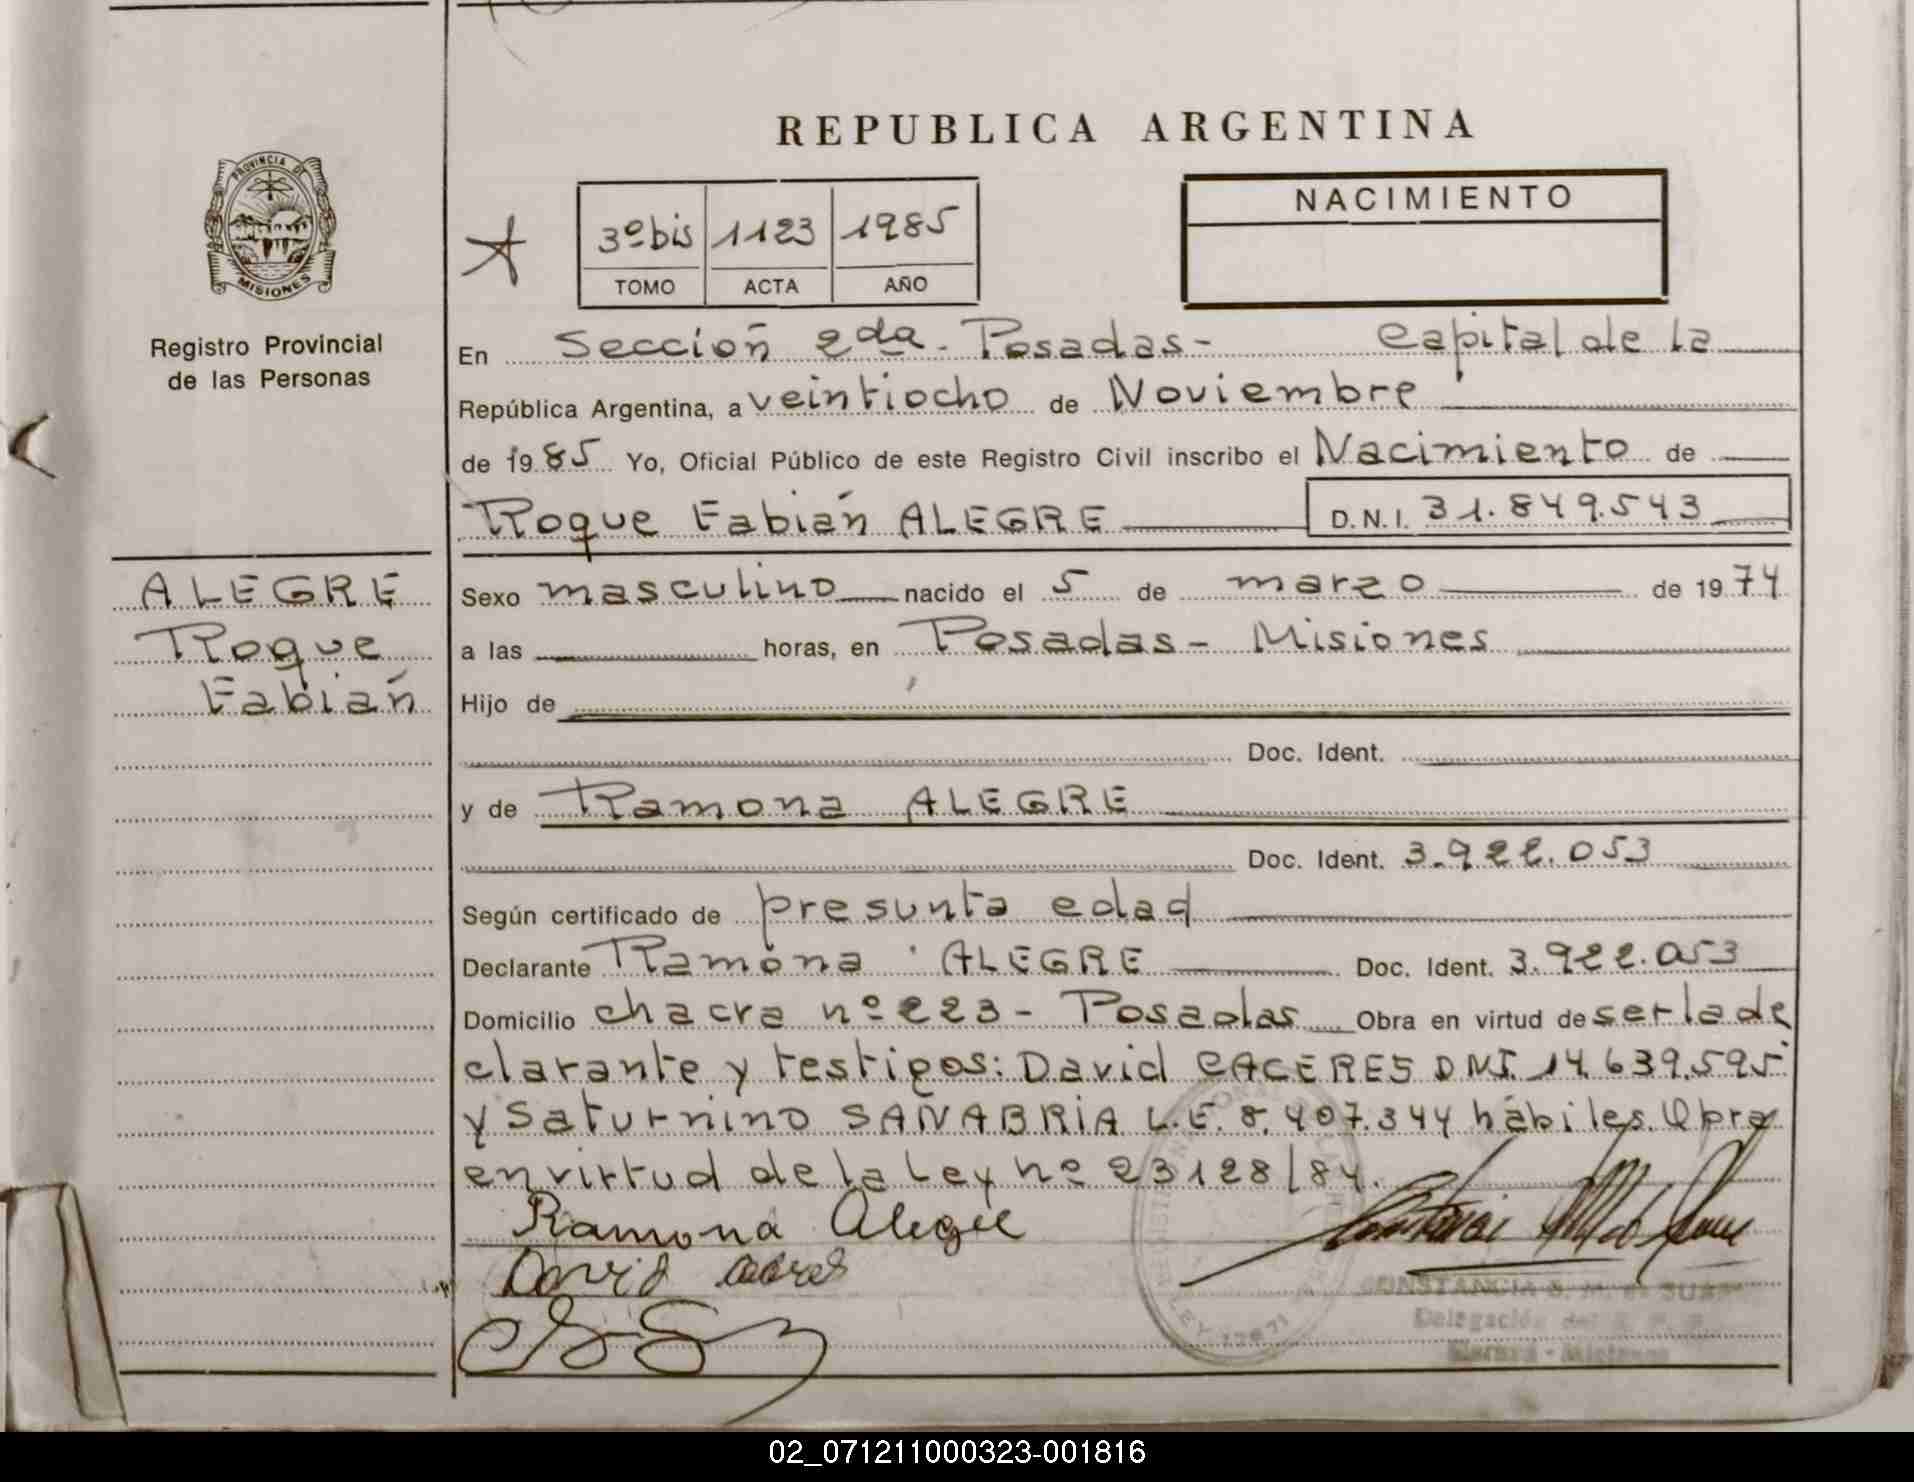 REPUBLICA ARGENTINA
PROVINCIA DE
MISIONES
Registro Provincial
de las Personas
3º bis 1123 1985
TOMO ACTA AÑO
NACIMIENTO
En Sección 2da. Posadas- Capital de la
República Argentina, a veintiocho de Noviembre
de 1985 Yo, Oficial Público de este Registro Civil inscribo el Nacimiento de
Roque Fabián ALEGRE D.N.I. 31.849.543
ALEGRE
Roque
Fabián
Sexo masculino nacido el 5 de marzo de 1974
a las horas, en Posadas- Misiones
Hijo de
Doc. Ident.
y de Ramona ALEGRE
Doc. Ident. 3.922.053
Según certificado de presunta edad
Declarante Ramona ALEGRE Doc. Ident. 3.922.053
Domicilio chacra nº 223- Posadas Obra en virtud de ser la de
clarante y testigos: David CACERES DNI. 14.639.595
y Saturnino SANABRIA L.E. 8.407.344 hábiles. Obra
en virtud de la Ley nº 23128/84.
Ramona Alegre
David
CONSTANCIA S. M. de
Delegación del
02_071211000323-001816